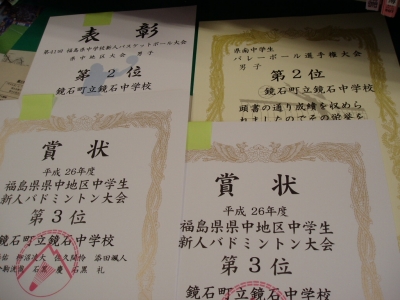 表彰
第21回 福島県中学校新人バスケットボール大会
県中地区大会 男子
第2位
鏡石町立鏡石中学校
県南中学生
バレーボール選手権大会
男子
第2位
鏡石町立鏡石中学校
頭書の通り成績を収めら
れましたのでその栄誉を
賞状
平成26年度
福島県県中地区中学生
新人バドミントン大会
第3位
鏡石町立鏡石中学校
石黒 慶 石黒 礼
賞状
平成26年度
福島県県中地区中学生
新人バドミントン大会
第3位
鏡石町立鏡石中学校